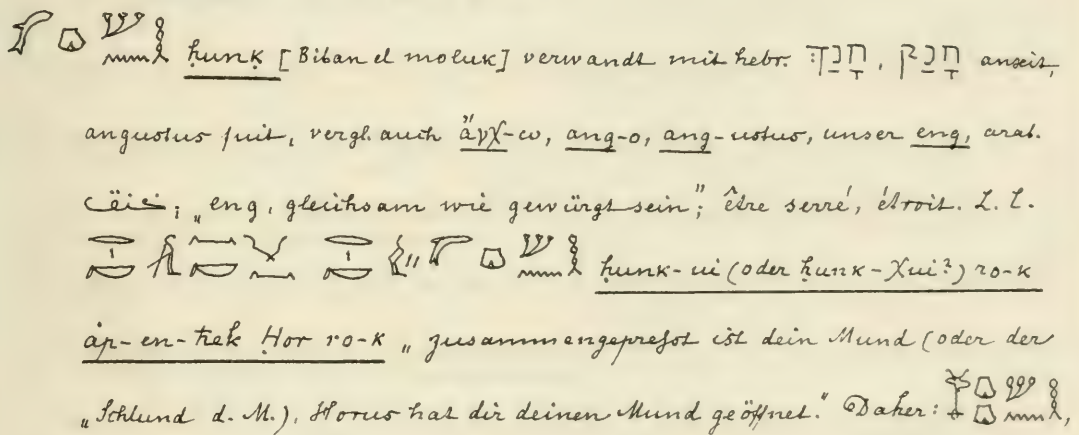 ḥunḳ [Biban el moluk] verwandt mit hebr. חָנַךְ, חָנַק anxit,
angustus fuit, vergl. auch ἄγχ-ω, ang-o, ang-ustus, unser eng, arab.
; „eng, gleichsam wie gewürgt sein"; être serré, étroit. L. l.
ḥunk-ui (oder ḥunk-χui?) ro-k
áp-en-tek Hor ro-k „zusammengepreßt ist dein Mund (oder der
„Schlund d. M.), Horus hat dir deinen Mund geöffnet." Daher: